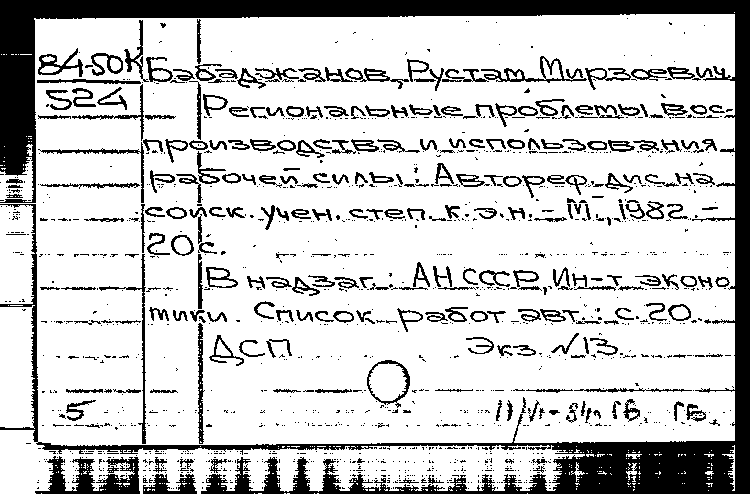 84-50К Бабаджанов, Рустам Мирзоевич.
524 Региональные проблемы вос-
производства и использования
рабочей силы: Автореф. дис. на
соиск. учен. степ. к.э.н. - М., 1982. -
20 с.
В надзаг.: АН СССР, Ин-т эконо
мики. Список работ авт.: с. 20.
ДСП Экз. №13
5 ГБ. ГБ.